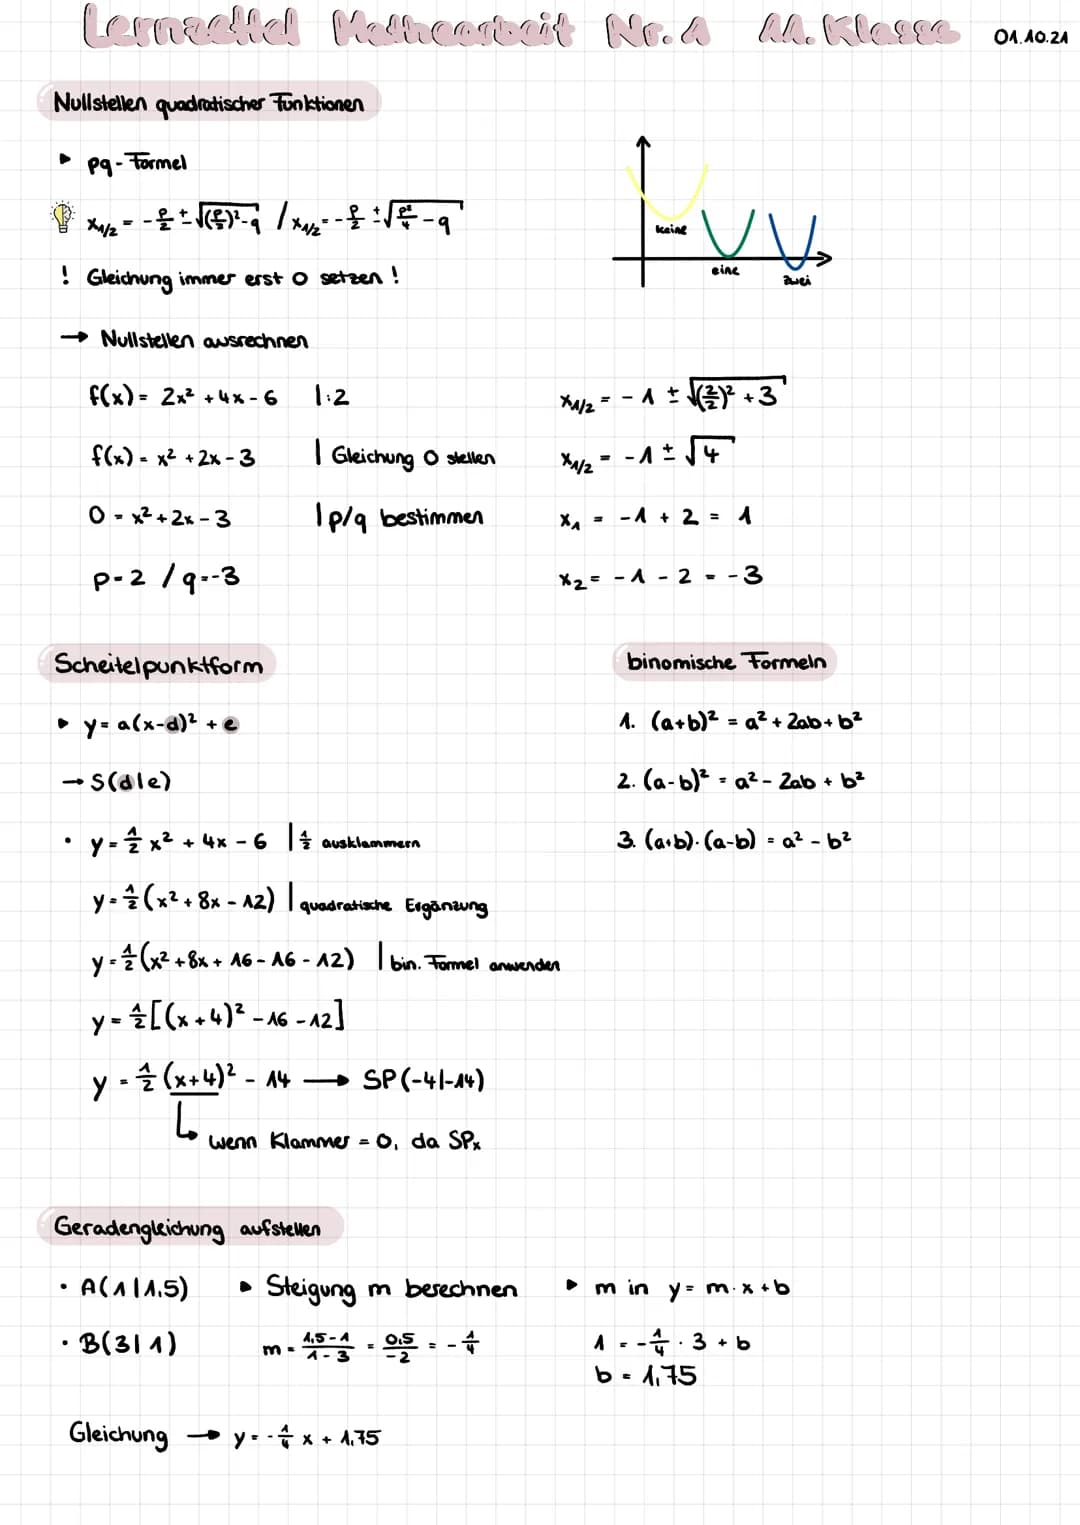 Lernzettel Mathearbeit Nr. 1 11. Klasse 01.10.21
Nullstellen quadratischer Funktionen
▸ pq-Formel
x₁/₂ = -p/2 ± √((p/2)²-q) / x₁/₂ = -p/2 ± √(p²/4 - q)
! Gleichung immer erst 0 setzen !
keine
eine
zwei
→ Nullstellen ausrechnen
f(x) = 2x² + 4x - 6 |:2
f(x) = x² + 2x - 3 | Gleichung 0 stellen
0 = x² + 2x - 3 | p/q bestimmen
p = 2 / q = -3
x₁/₂ = -1 ± √((2/2)² + 3)
x₁/₂ = -1 ± √4
x₁ = -1 + 2 = 1
x₂ = -1 - 2 = -3
Scheitelpunktform
▸ y = a(x-d)² + e
→ S(d|e)
• y = 1/2 x² + 4x - 6 | 1/2 ausklammern
y = 1/2 (x² + 8x - 12) | quadratische Ergänzung
y = 1/2 (x² + 8x + 16 - 16 - 12) | bin. Formel anwenden
y = 1/2 [(x + 4)² - 16 - 12]
y = 1/2 (x+4)² - 14 → SP(-4|-14)
↳ wenn Klammer = 0, da SPₓ
binomische Formeln
1. (a+b)² = a² + 2ab + b²
2. (a-b)² = a² - 2ab + b²
3. (a+b)·(a-b) = a² - b²
Geradengleichung aufstellen
• A(1|1,5) ▸ Steigung m berechnen ▸ m in y = m·x + b
• B(3|1) m = (1,5-1)/(1-3) = 0,5/-2 = -1/4 1 = -1/4 · 3 + b
b = 1,75
Gleichung → y = -1/4 x + 1,75